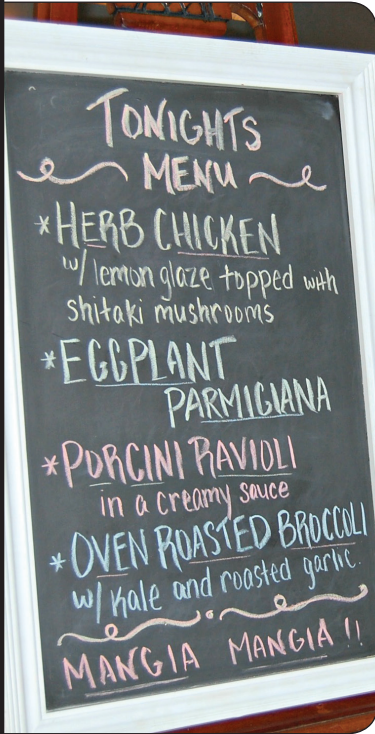 TONIGHTS
MENU
*HERB CHICKEN
w/ lemon glaze topped with
shitaki mushrooms
*EGGPLANT
PARMIGIANA
*PORCINI RAVIOLI
in a creamy sauce
*OVEN ROASTED BROCCOLI
w/ Kale and roasted garlic.
MANGIA MANGIA !!